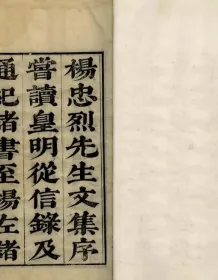 楊忠烈先生文集序
嘗讀皇明從信錄及
通紀諸書至楊左諸